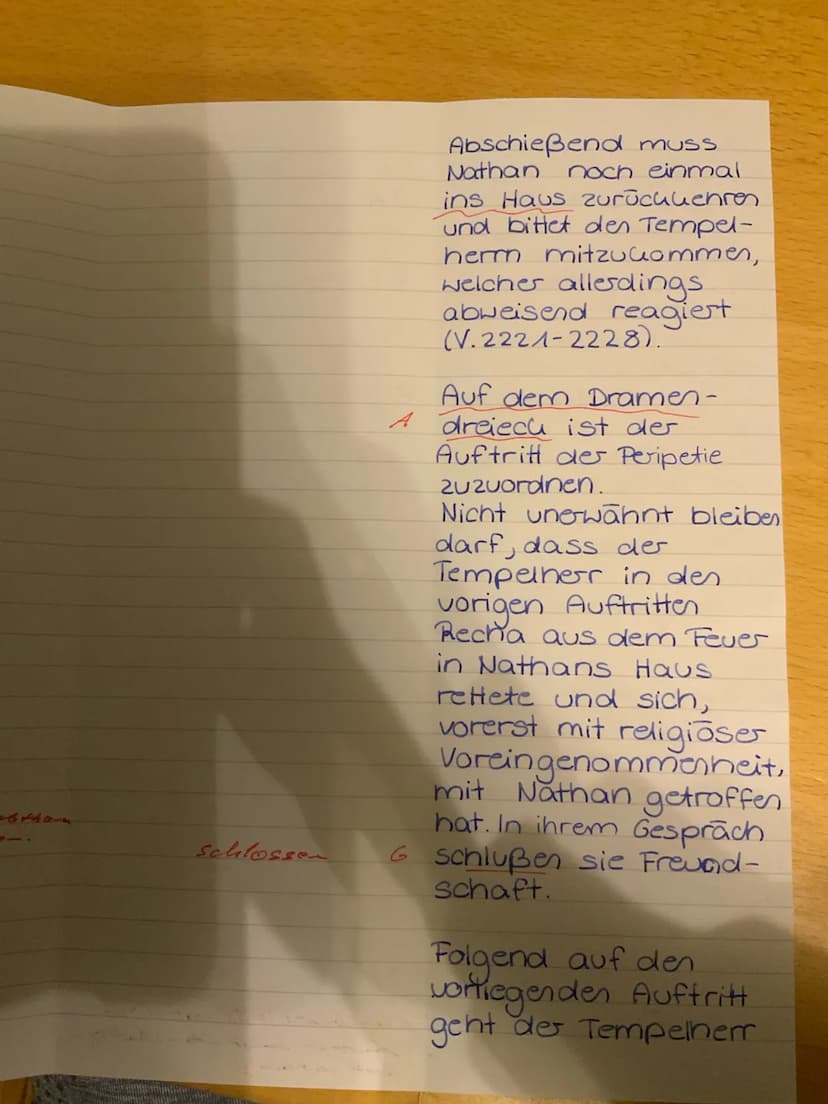 Abschießend muss
Nathan noch einmal
ins Haus zurückkehren
und bittet den Tempel-
herrn mitzukommen,
welcher allerdings
abweisend reagiert
(V.2221-2228).
Auf dem Dramen-
A dreieck ist der
Auftritt der Peripetie
zuzuordnen.
Nicht unerwähnt bleiben
darf, dass der
Tempelherr in den
vorigen Auftritten
Recha aus dem Feuer
in Nathans Haus
rettete und sich,
vorerst mit religiöser
Voreingenommenheit,
mit Nathan getroffen
hat. In ihrem Gespräch
schlossen G schlußen sie Freund-
schaft.
Folgend auf den
vorliegenden Auftritt
geht der Tempelherr